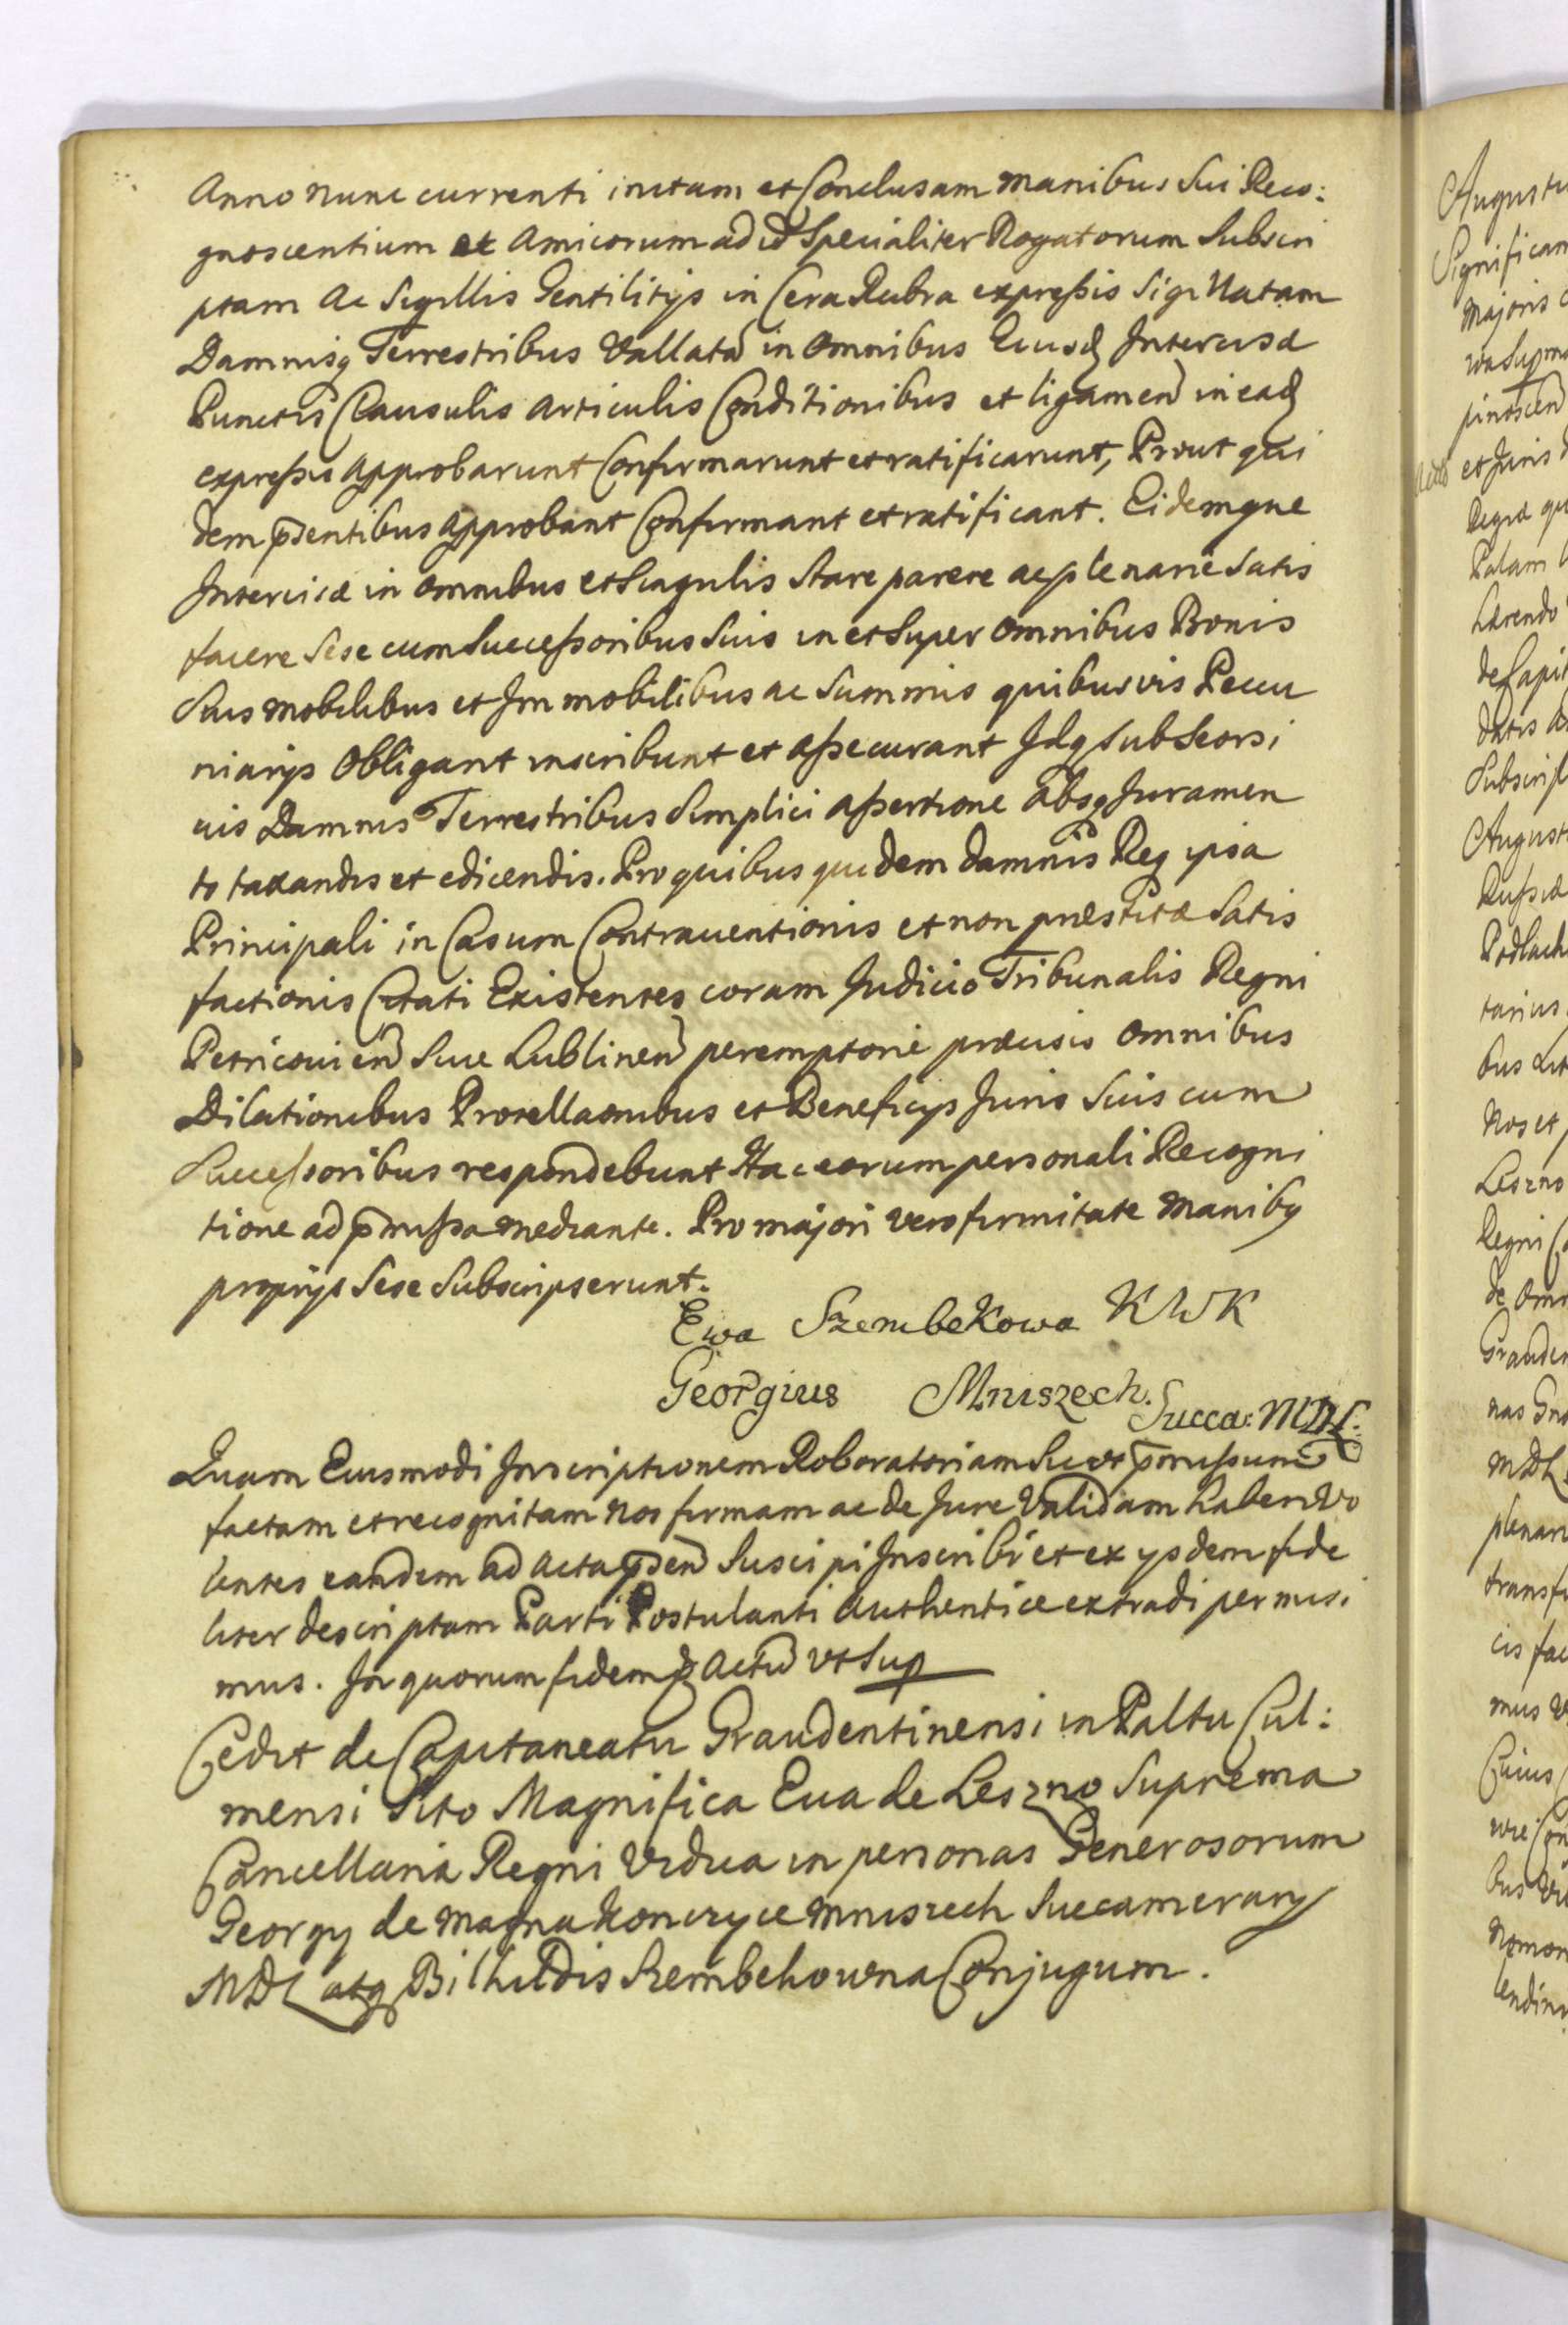 Anno nunc currenti initam et Conclusam manibus Sui Reco:
gnoscentium et Amicorum ad id Specialiter Rogatorum Subscri
ptam Ac Sigillis Gentilitijs in Cera Rubra expressis SigiNatam
Damnisq Terrestribus Vallatã in Omnibus Eiusd Intercisæ
Punctis Clausulis Articulis Conditionibus et ligamen in ead
expressis Approbarunt Confirmarunt et ratificarunt, Prout qui
dem p̃sentibus Approbant Confirmant et ratificant. Eidemque
Intercisæ in Omnibus et Singulis Stare parere ac plenarie Satis
facere Sese cum Successoribus Suis in et Super Omnibus Bonis
Suis Mobilibus et Immobilibus ac Summis quibusvis Pecu
niarijs Obligant inscribunt et Assecurant Idq sub Seorsi
vis Damnis Terrestribus Simplici Assertione Absq Juramen
to taxandis et edicendis. Pro quibus quidem damnis Req ipsa
Principali in Casum Contrauentionis et non præstitæ Satis
factionis Citati Existentes coram Judicio Tribunalis Regni
Petricouien Siue Lublinen peremptorie præcisis Omnibus
Dilationibus Procellaonibus et Beneficijs Juris Suis cum
Successoribus respondebunt Hac eorum personali Recogni
tione ad p̃missa mediante. Pro majori vero firmitate Manibq
proprijs Sese Subscripserunt.
Ewa SzembeKowa KWK
Georgius Mniszech. Succa: MDL:
Quam Eiusmodi Inscriptionem Roboratoriam Sic vt p̃missum
factam et recognitam Nos firmam ac de Jure Validam haberi Vo
lentes eandem ad Acta p̃sen Suscipi Inscribi et ex ysdem fide
liter descriptam Parti Postulanti Authentice extradi permisi
mus. In quorum fidem Actũ vt Sup
Cedit de Capitaneatu Graudentinensi in Paltu Cul:
mensi Sito Magnifica Eua de Leszno Suprema
Cancellaria Regni Vidua in personas Generosorum
Georgy de Magna Konczyce Mniszech Succamerary
MDL atq Bilhildis Szembekowna Conjugum.